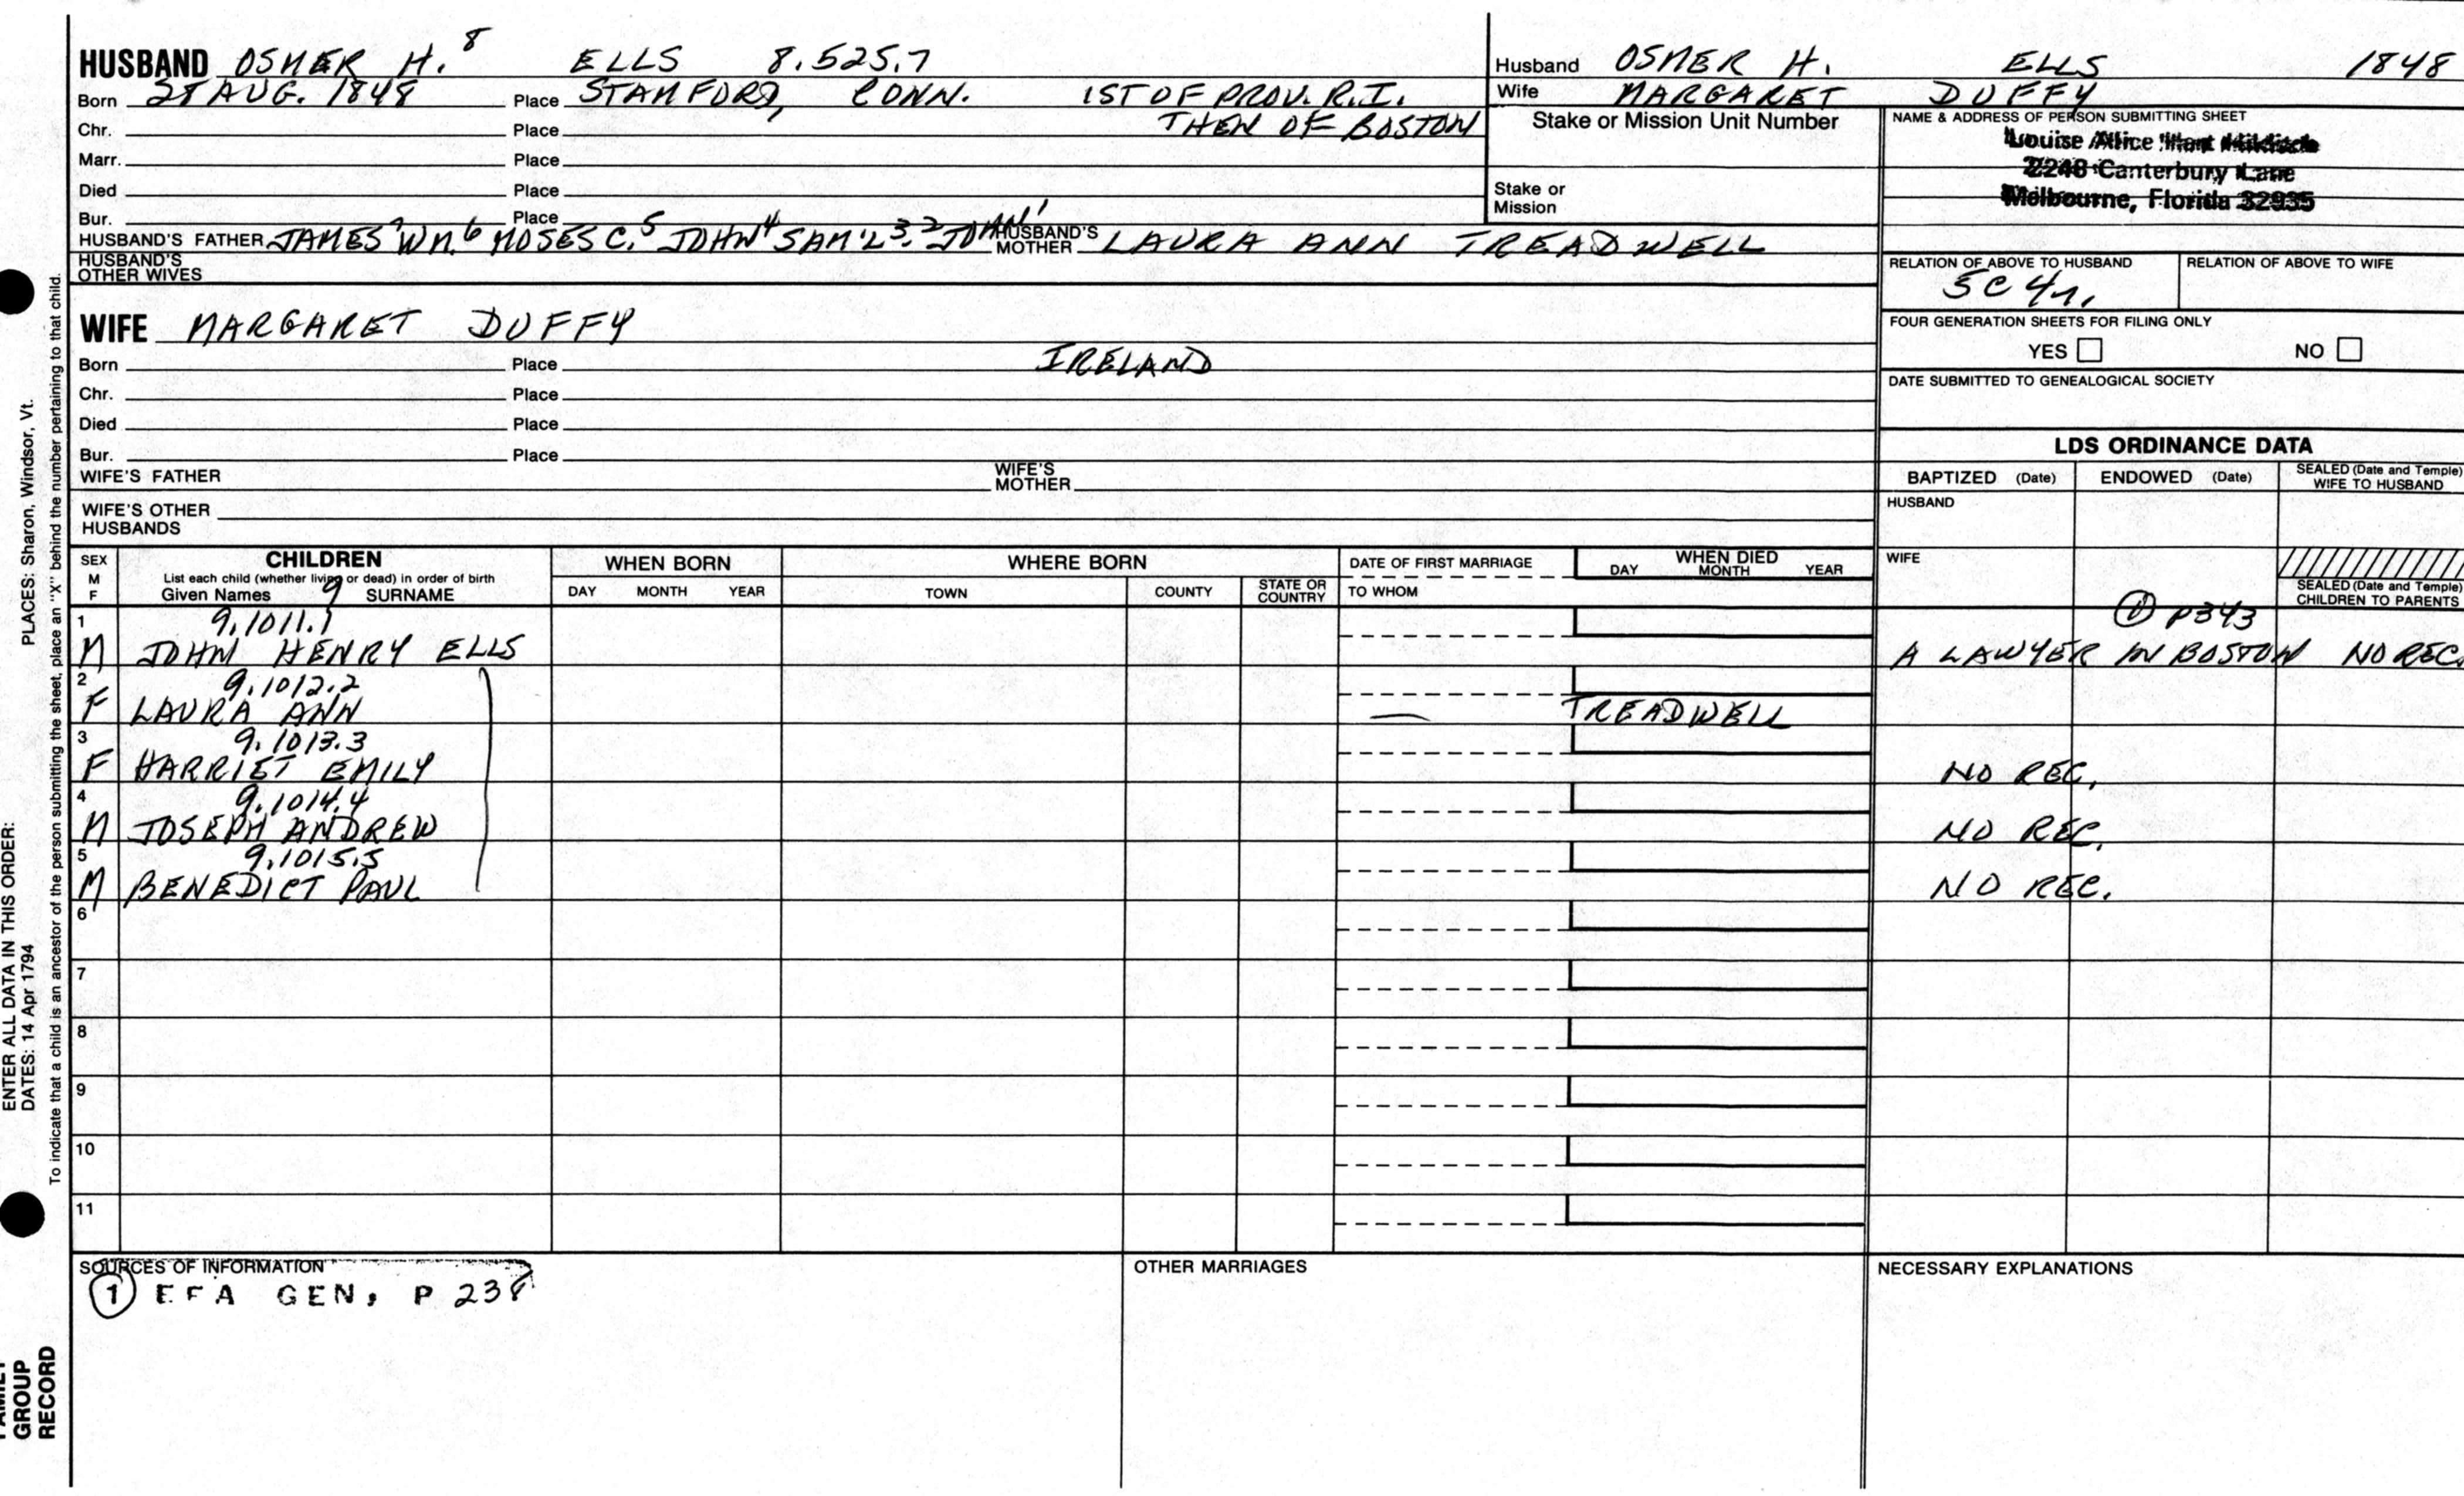 HUSBAND OSMER H.⁸ ELLS 8.525.7
Born 28 AUG. 1848 Place STAMFORD, CONN. 1ST OF PROV. R.I.
Chr. Place THEN OF BOSTON
Marr. Place
Died Place
Bur. Place
HUSBAND'S FATHER JAMES⁷ WM.⁶ MOSES C.⁵ JOHN⁴ SAM'L³·² JOHN¹ HUSBAND'S MOTHER LAURA ANN TREADWELL
HUSBAND'S OTHER WIVES
WIFE MARGARET DUFFY
Born Place IRELAND
Chr. Place
Died Place
Bur. Place
WIFE'S FATHER WIFE'S MOTHER
WIFE'S OTHER HUSBANDS
Husband OSMER H. ELLS 1848
Wife MARGARET DUFFY
Stake or Mission Unit Number
Stake or Mission
NAME & ADDRESS OF PERSON SUBMITTING SHEET
Louise Alice
2248 Canterbury Lane
Melbourne, Florida 32935
RELATION OF ABOVE TO HUSBAND RELATION OF ABOVE TO WIFE
5C 4r.
FOUR GENERATION SHEETS FOR FILING ONLY
YES NO
DATE SUBMITTED TO GENEALOGICAL SOCIETY
LDS ORDINANCE DATA
BAPTIZED (Date) ENDOWED (Date) SEALED (Date and Temple) WIFE TO HUSBAND
HUSBAND
WIFE
SEALED (Date and Temple) CHILDREN TO PARENTS
SEX M F
CHILDREN
List each child (whether living or dead) in order of birth
Given Names 9 SURNAME
WHEN BORN
DAY MONTH YEAR
WHERE BORN
TOWN COUNTY STATE OR COUNTRY
DATE OF FIRST MARRIAGE
TO WHOM
WHEN DIED
DAY MONTH YEAR
1 9.1011.1 ① P343
M JOHN HENRY ELLS A LAWYER IN BOSTON NO REC.
2 9.1012.2
F LAURA ANN — TREADWELL
3 9.1013.3
F HARRIET EMILY NO REC.
4 9.1014.4
M JOSEPH ANDREW NO REC.
5 9.1015.5
M BENEDICT PAUL NO REC.
6
7
8
9
10
11
SOURCES OF INFORMATION
① EFA GEN, P 238
OTHER MARRIAGES
NECESSARY EXPLANATIONS
ENTER ALL DATA IN THIS ORDER:
DATES: 14 Apr 1794 PLACES: Sharon, Windsor, Vt.
To indicate that a child is an ancestor of the person submitting the sheet, place an "X" behind the number pertaining to that child.
FAMILY
GROUP
RECORD